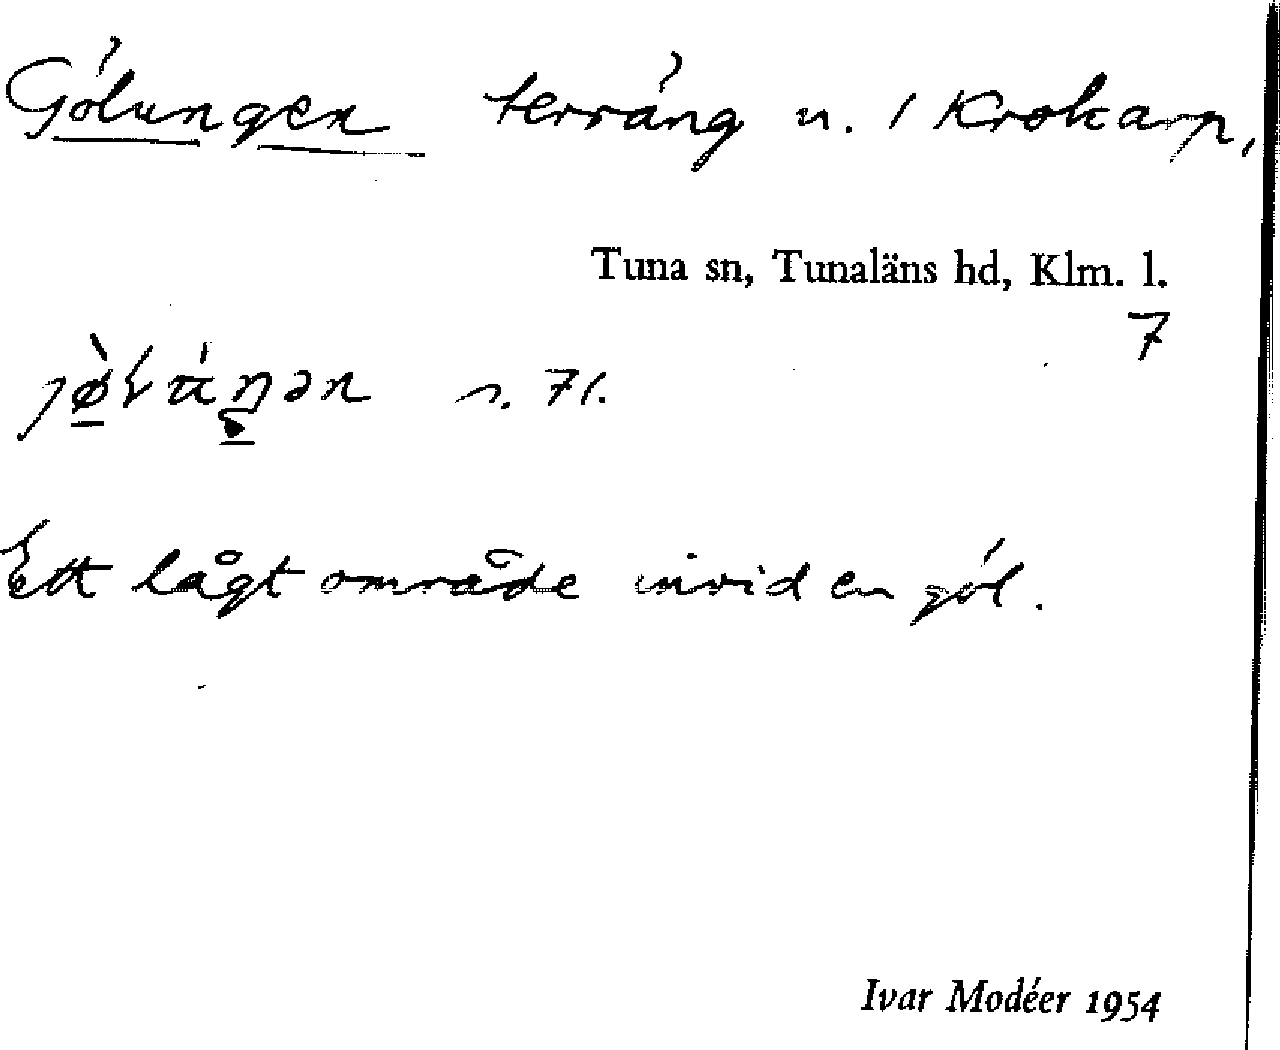 Gölungen terräng u. / Krokarp,
Tuna sn, Tunaläns hd, Klm. l.
7
s. 71.
Ett lågt område invid en göl.
Ivar Modéer 1954